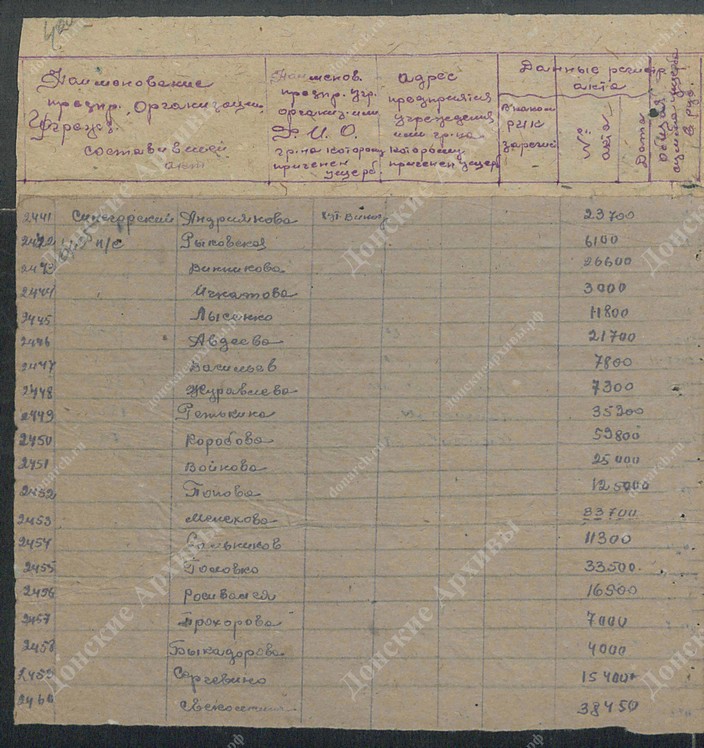 Наименование предпр. Организации, Учрежд. составивший акт
Наименов предпр. учр. организ. или Ф. И. О. гр-на которому причинен ущерб
адрес предприятия учреждения или гр-на которому причинен ущерб
Данные регистр акта
В каком РИК зарегис
№ акта
Дата
общая сумма ущерба в руб.
2441 Синегорский Андриянова 23700
2442 п/с Рыковская 6100
2443 Винникова 26600
2444 Игнатова 3000
2445 Лысенко 11800
2446 Авдеева 21700
2447 Васильев 7800
2448 Журавлева 7300
2449 Репькина 35200
2450 Коробова 59800
2451 Войкова 25000
2452 Попова 125000
2453 83700
2454 11300
2455 Головко 33500
2456 16500
2457 Прохорова 7000
2458 Быкадорова 4000
2459 15400
2460 38450
Донские Архивы
donarch.ru
донскиеархивы.рф